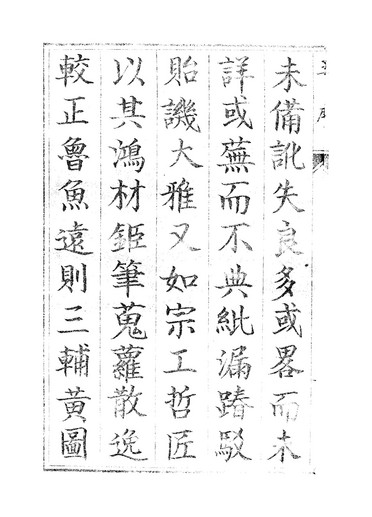 未備訛失良多或畧而未
詳或蕪而不典紕漏踳駁
貽譏大雅又如宗工哲匠
以其鴻材鉅筆蒐蘿散逸
較正魯魚遠則三輔黃圖